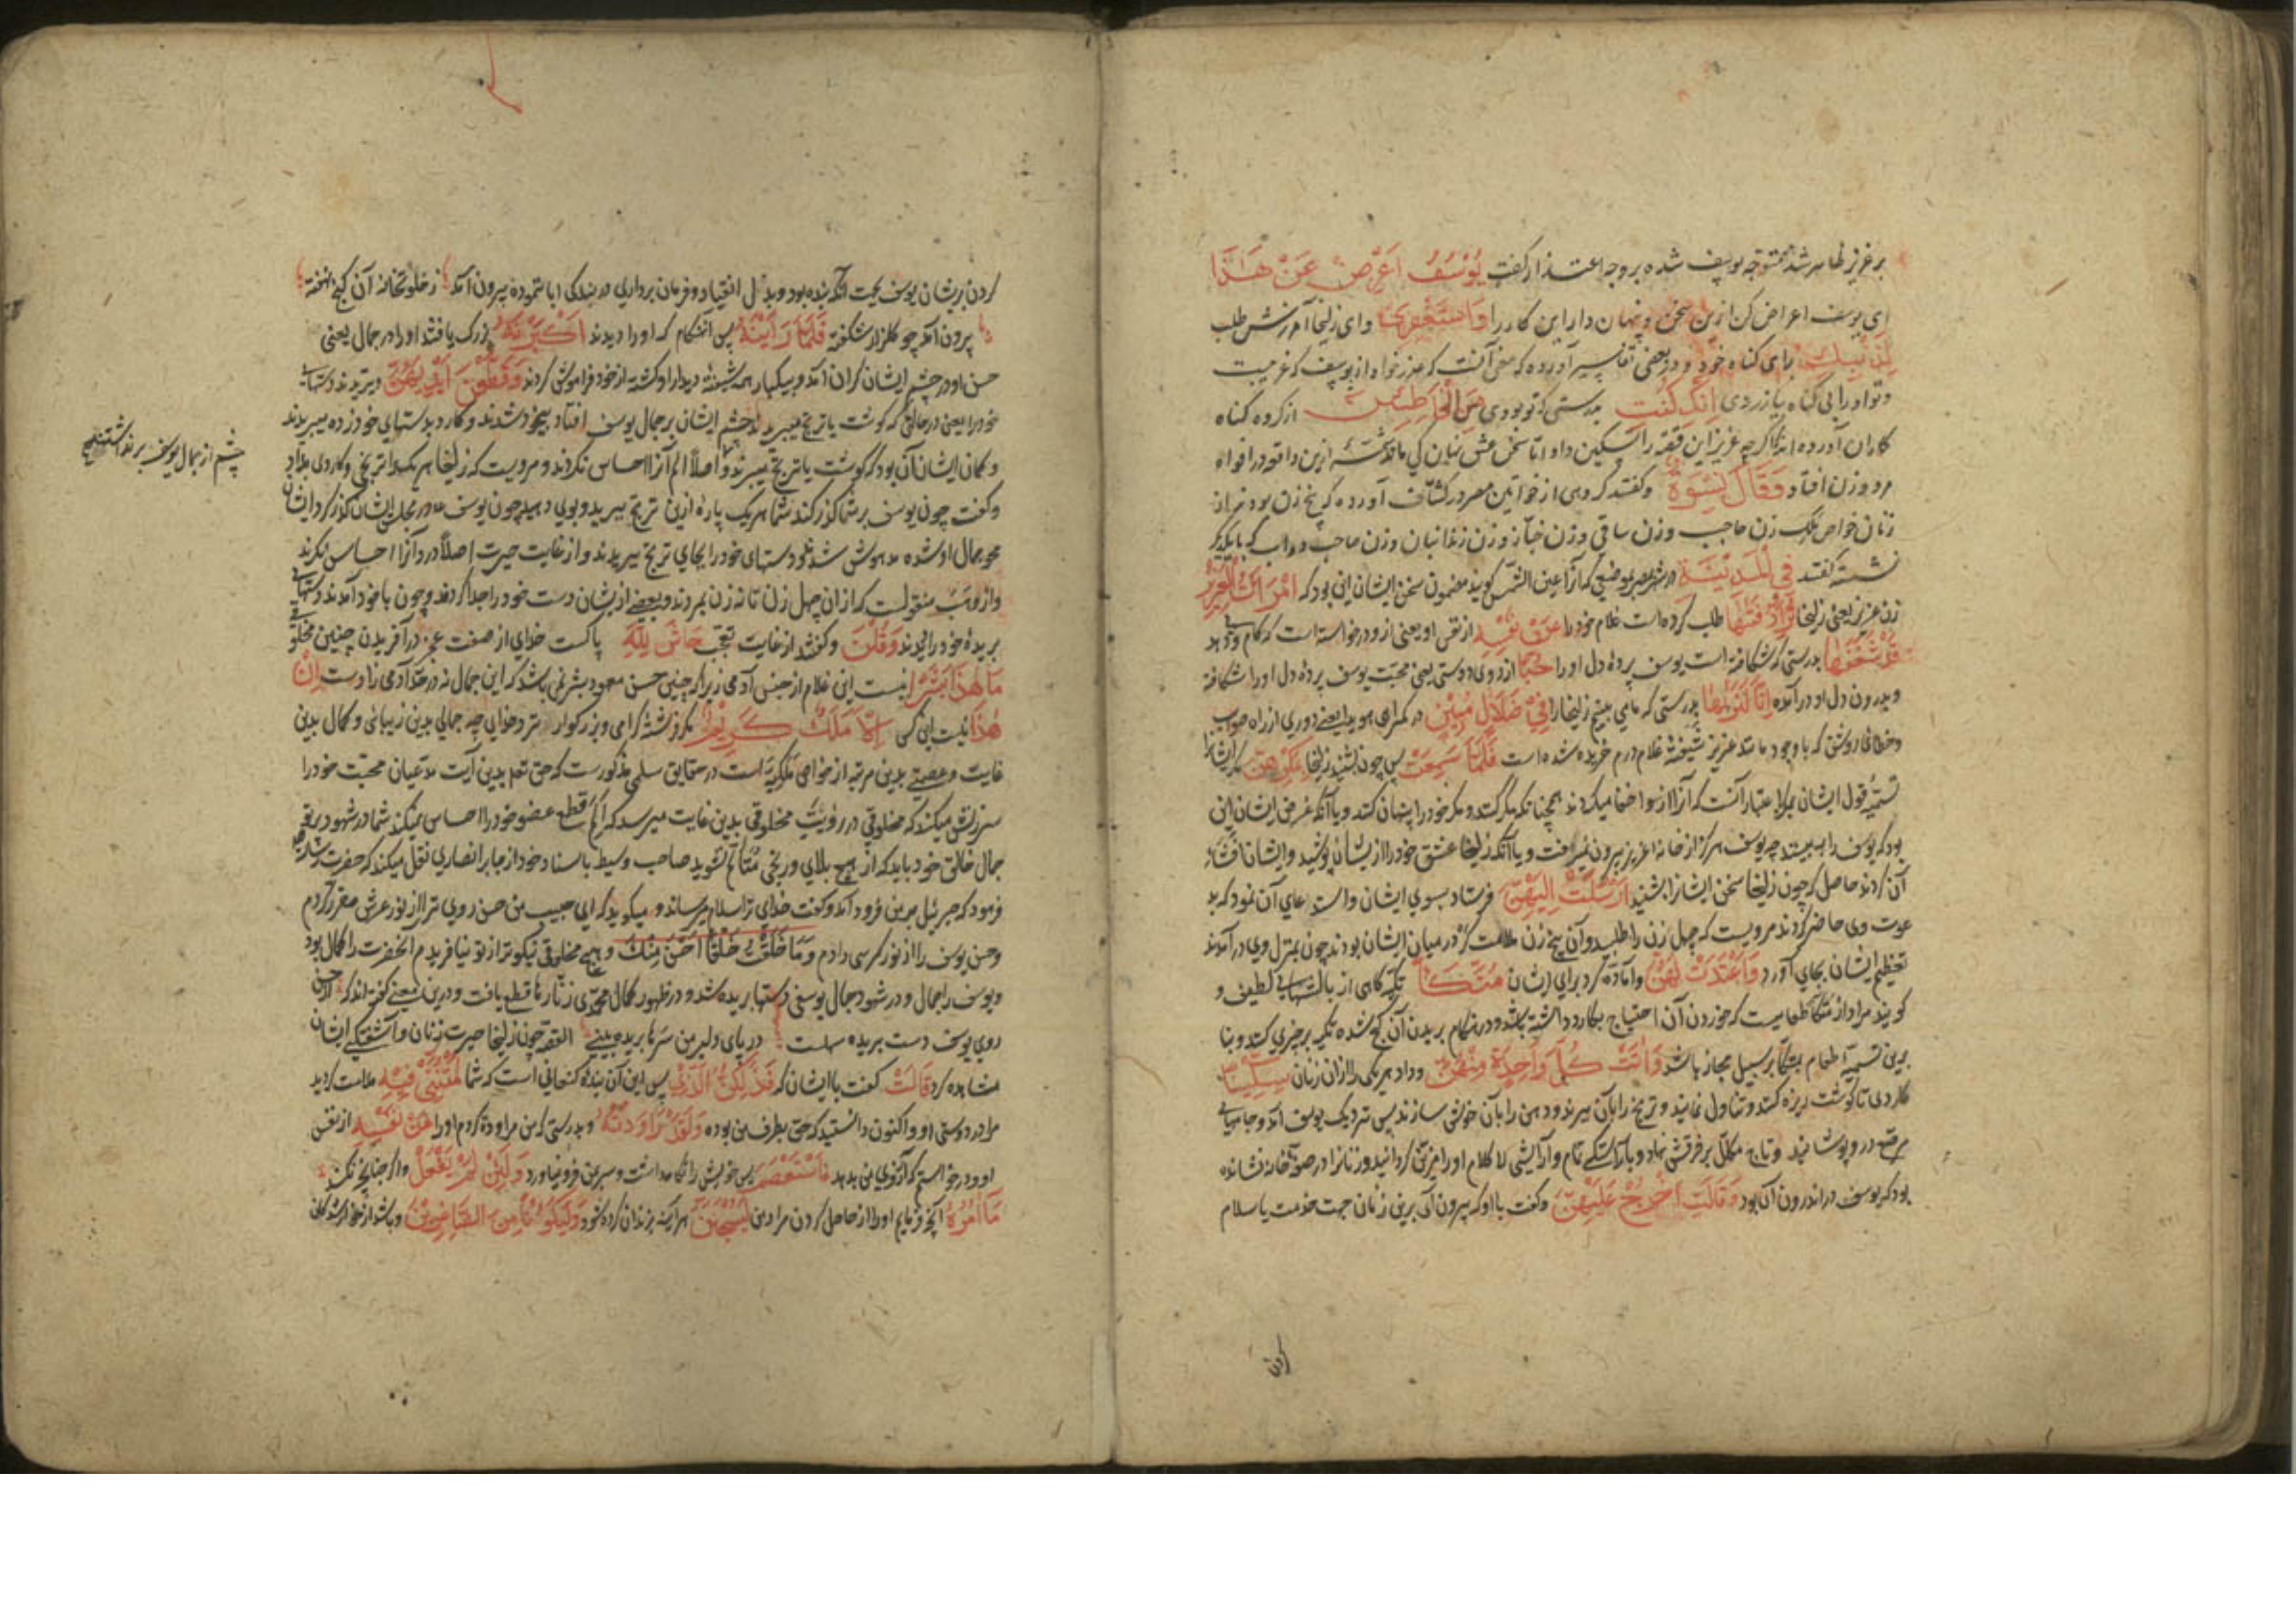 بر عزیز ظاهر شد متوجه یوسف شده بر وجه اعتذار گفت یُوْسُفُ اَعْرِضْ عَنْ هَذَا
ای یوسف اعراض کن ازین سخن و پنهان دار این کار را وَاسْتَغْفِرِیْ وای زلیخا آمرزش طلب
لِذَنْبِكِ برای کناه خود و در بعضی تفاسیر آورده که معنی آنست که عذر خواه از یوسف که غریبست
وتو او را بی کناه بیازردی اِنَّكِ كُنْتِ بدرستی که تو بودی مِنَ الْخَاطِئِیْنَ از کروه کناه
کاران آورده اند که اکرچه عزیز این قصه را تسکین داد اما سخن عشق نهان کی ماند شمه ازین واقعه در افواه
مرد و زن افتاد وَقَالَ نِسْوَةٌ وکفتند کروهی از خواتین مصر در کشاف آورده که پنج زن بودند از
زنان خواص ملک زن حاجب وزن ساقی وزن خباز وزن زندانبان وزن صاحب دواب که با یکدیگر
نشسته کفتند فِی الْمَدِیْنَةِ در شهر مصر بموضعی که آنرا عین الشمس کویند مضمون سخن ایشان این بود که امْرَاَتُ الْعَزِیْزِ
زن عزیز یعنی زلیخا تُرَاوِدُ فَتٰهَا طلب کرده است غلام خود را عَنْ نَفْسِهِ از نفس او یعنی ازو درخواسته است که کام وی دهد
قَدْ شَغَفَهَا بدرستی که شکافته است یوسف پردهٔ دل او را حُبًّا از روی دوستی یعنی محبت یوسف پردهٔ دل او را شکافته
و بدرون دل او درآمده اِنَّا لَنَرٰیهَا بدرستی که ما می بینیم زلیخا را فِیْ ضَلَالٍ مُبِیْنٍ در کمراهی هویدا یعنی دوری از راه صواب
وخطائی روشن که با وجود مانند عزیز شیفتهٔ غلام درم خریده شده است فَلَمَّا سَمِعَتْ پس چون بشنید زلیخا بِمَكْرِهِنَّ مکر ایشانرا
تسمیهٔ قول ایشان بمکر باعتبار آنست که آنرا ازو اخفا میکردند همچنانکه مکر کننده مکر خود را پنهان کند و یا آنکه غرض ایشان این
بود که یوسف را ببینند چه یوسف هرکز از خانه عزیز بیرون نمیرفت و یا آنکه زلیخا عشق خود را از یشان پوشید و ایشان افشاء
آن کردند حاصل که چون زلیخا سخن ایشانرا شنید اَرْسَلَتْ اِلَیْهِنَّ فرستاد بسوی ایشان و استدعای آن نمود که بد
عوت وی حاضر کردند مرویست که چهل زن را طلبید و آن پنج زن ملامت کر در میان ایشان بودند چون بمنزل وی درآمدند
تعظیم ایشان بجای آورد وَاَعْتَدَتْ لَهُنَّ وآماده کرد برای ایشان مُتَّكَاً تکیه کاهی از بالشهای لطیف و
کویند مراد از متکا طعامیست که خوردن آن احتیاج بکارد داشته باشد و در هنکام بریدن آن کج شده تکیه بر چیزی کنند و بنا
برین تسمیهٔ طعام بمتکا بر سبیل مجاز باشد وَاٰتَتْ كُلَّ وَاحِدَةٍ مِنْهُنَّ وداد هر یکی را از ان زنان سِكِّیْنًا
کاردی تا کوشت ریزه کنند و تناول نمایند و ترنج را بآن ببرند و دهن را بآن خوش سازند پس نزدیک یوسف آمد و جامهای
مرصع درو پوشانید وتاج مکلل بر فرقش نهاد و بآراستکی تمام و آرایشی لا کلام او را مزین کردانید و زنانرا در صفهٔ خانه نشانده
بود که یوسف در اندرون آن بود وَقَالَتِ اخْرُجْ عَلَیْهِنَّ وکفت با او که بیرون آی برین زنان جهت خدمت یا سلام
کردن
کردن بریشان یوسف بجهت آنکه بنده بود و بذل انقیاد و فرمان برداری در بندکی ابا ننموده بیرون آمد ز خلوتخانه آن کنج نهفته
برون آمد چو کلزار شکفته فَلَمَّا رَاَیْنَهُ پس آنهنکام که او را دیدند اَكْبَرْنَهُ بزرک یافتند او را در جمال یعنی
حسن او در چشم ایشان کران آمد و بیکبار همه شیفتهٔ دیدار او کشته از خود فراموش کردند وَقَطَّعْنَ اَیْدِیَهُنَّ وبریدند دستهای
خود را یعنی در حالتی که کوشت یا ترنج میبریدند چشم ایشان بر جمال یوسف افتاد بیخود شدند و کارد بدستهای خود زده میبریدند
وکمان ایشان آن بود که کوشت یا ترنج میبرند و اصلا الم آنرا احساس نکردند و مرویست که زلیخا هر یک را ترنجی و کاردی بداد
چشم از جمال یوسف برنداشتند
وکفت چون یوسف بر شما کذر کند شما هر یک پارهٔ ازین ترنج ببرید و بوی دهید چون یوسف در مجلس ایشان کذر کرد ایشان
محو جمال او شده مدهوش شدند و دستهای خود را بجای ترنج ببریدند و از غایت حیرت اصلا درد آنرا احساس نکردند
واز وهب منقولست که از ان چهل زن تا نه زن بمردند و بعضی از یشان دست خود را جدا کردند و چون با خود آمدند دستهای
بریدهٔ خود را دیدند وَقُلْنَ وکفتند از غایت تعجب حَاشَ لِلّٰهِ پاکست خدای از صفت عجز در آفریدن چنین مخلوق
مَا هٰذَا بَشَرًا نیست این غلام از جنس آدمی زیرا که چنین حسن معهود بشر نمی باشد که این جمال نه در حد آدمی زادست اِنْ
هٰذَا نیست این کس اِلَّا مَلَكٌ كَرِیْمٌ مکر فرشتهٔ کرامی و بزرکوار نزد خدای چه جمالی بدین زیبائی و کمال بدین
غایت و عصمتی بدین مرتبه از خواص ملکیه است در حقایق سلمی مذکورست که حق تعالی بدین آیت مدعیان محبت خود را
سرزنش میکند که مخلوقی در رؤیت مخلوقی بدین غایت میرسد که الم قطع عضو خود را احساس نمیکند شما در شهود پرتو
جمال خالق خود باید که از هیچ بلای و رنجی متألم نشوید صاحب وسیط باسناد خود از جابر انصاری نقل میکند که حضرت رسالت
فرمود که جبرئیل بر من فرود آمد و کفت خدای ترا سلام میرساند و میکوید که ای حبیب من حسن روی ترا از نور عرش مقرر کردم
وحسن یوسف را از نور کرسی دادم وَمَا خَلَقْتُ خَلْقًا اَحْسَنَ مِنْكَ وهیچ مخلوقی نیکوتر از تو نیافریدم آنحضرت را کمال بود
ویوسف را جمال و در شهود جمال یوسفی دستها بریده شد و در ظهور کمال محمدی زنارها قطع یافت و درین معنی کفته اند که از حسن
روی یوسف دست بریده سهلست در پای دلبر من سرها بریده بینی القصه چون زلیخا حیرت زنان و آشفتکی ایشان
مشاهده کرد قَالَتْ کفت با ایشان که فَذٰلِكُنَّ الَّذِیْ پس این آن بندهٔ کنعانی است که شما لُمْتُنَّنِیْ فِیْهِ ملامت کردید
مرا در دوستی او و اکنون دانستید که حق بطرف من بوده وَلَقَدْ رَاوَدْتُهُ وبدرستی که من مراودهٔ کردم او را عَنْ نَفْسِهِ از نفس
او و درخواستم که آرزوی من بدهد فَاسْتَعْصَمَ پس خویش را نکاه داشت و سر بمن فرو نیاورد وَلَئِنْ لَمْ یَفْعَلْ واکر چنانچه نکند
مَا اٰمُرُهُ آنچه فرمایم او را از حاصل کردن مراد من لَیُسْجَنَنَّ هرآینه بزندان کرده شود وَلَیَكُوْنًا مِنَ الصَّاغِرِیْنَ وباشد از خوارشدکان